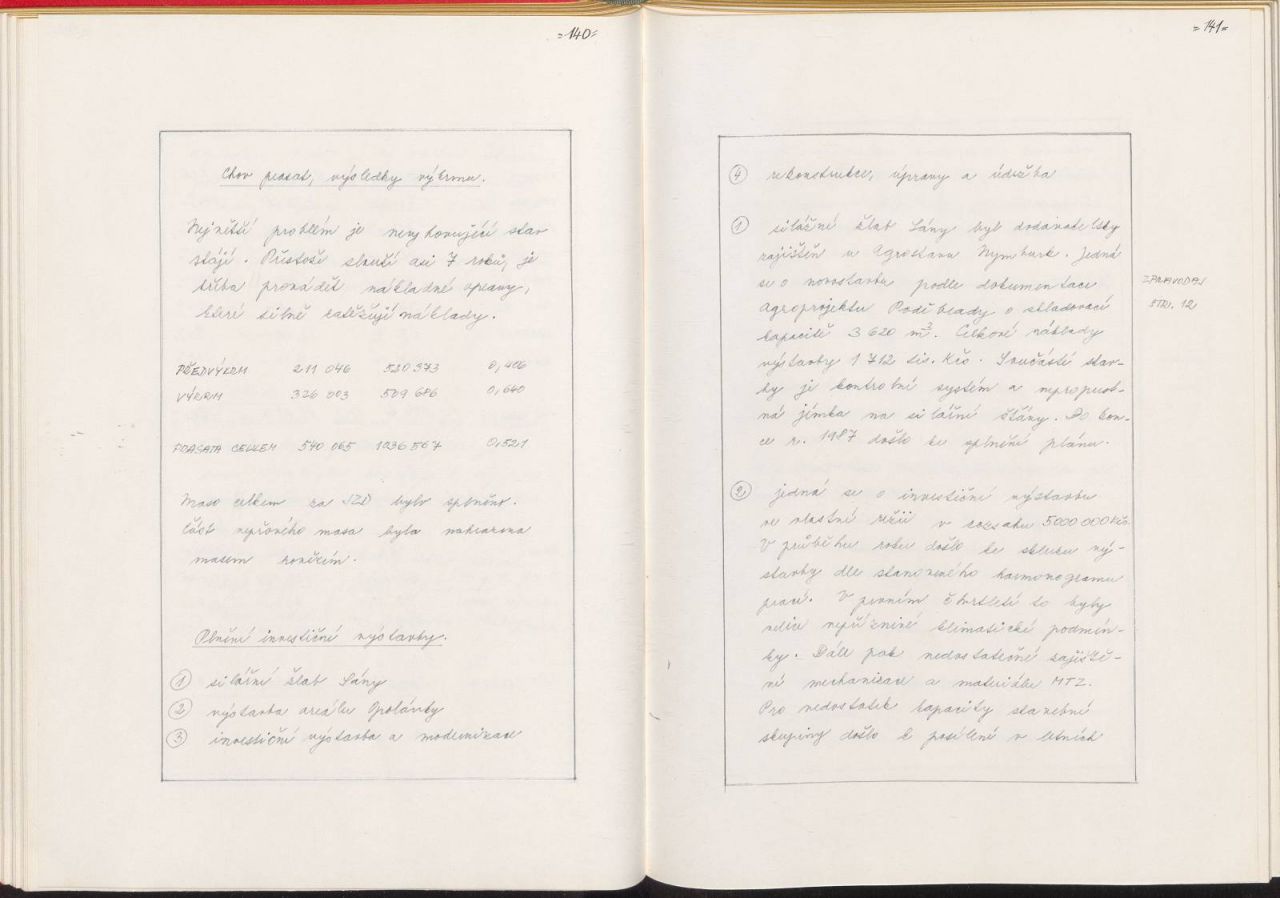 =140=
Chov prasat, výsledky výkrmu.
Největší problém je nevyhovující stav
stájí. Přestože slouží asi 7 roků, je
třeba provádět nákladné opravy,
které silně zatěžují náklady.
PŘEDVÝKRM 211 046 520 373 0,406
VÝKRM 326 003 509 686 0,640
PRASATA CELKEM 540 065 1036 567 0,521
Maso celkem za JZD bylo splněno.
Část vepřového masa byla nahrazena
masem hovězím.
Plnění investiční výstavby.
① silážní žlab Sány
② výstavba areálu Opolánky
③ investiční výstavba a modernizace
=141=
④ rekonstrukce, úpravy a údržba
① silážní žlab Sány byl dodavatelsky
zajištěn u Agrostavu Nymburk. Jedná
se o novostavbu podle dokumentace
Agroprojektu Poděbrady o skladovací
kapacitě 3 620 m³. Celkové náklady
výstavby 1 712 tis. Kčs. Součástí stav-
by je kontrolní systém a nepropust-
ná jímka na silážní šťávy. Do kon-
ce r. 1987 došlo ke splnění plánu.
ZPRAVODAJ
STR. 12
② jedná se o investiční výstavbu
ve vlastní režii v rozsahu 5000 000 Kčs.
V průběhu roku došlo ke skluzu vý-
stavby dle stanoveného harmonogramu
prací. V prvním čtvrtletí to byly
velice nepříznivé klimatické podmín-
ky. Dále pak nedostatečné zajiště-
ní mechanizace a materiálu MTZ.
Pro nedostatek kapacity stavební
skupiny došlo k posílení v letních